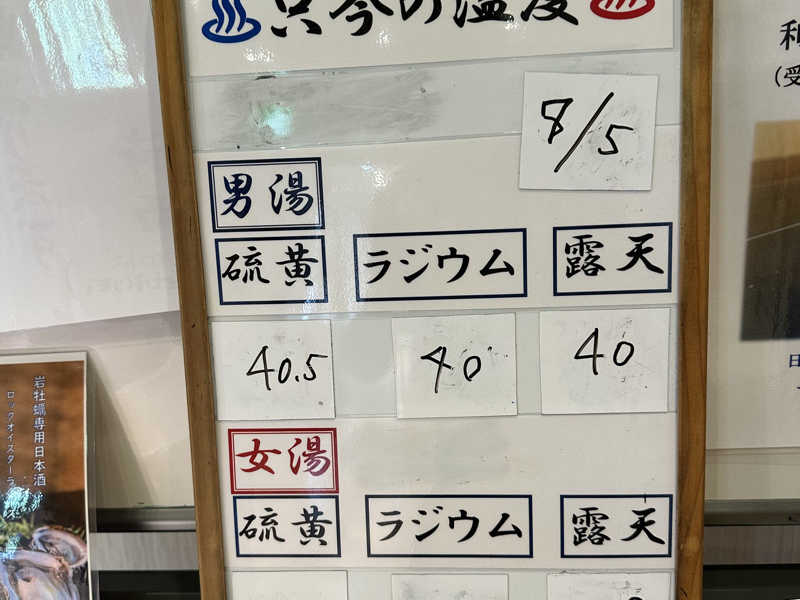 只今の温度
8/5
男湯
硫黄 ラジウム 露天
40.5 40 40
女湯
硫黄 ラジウム 露天
岩牡蠣専用日本酒
ロックオイスターラ
和
(受
日